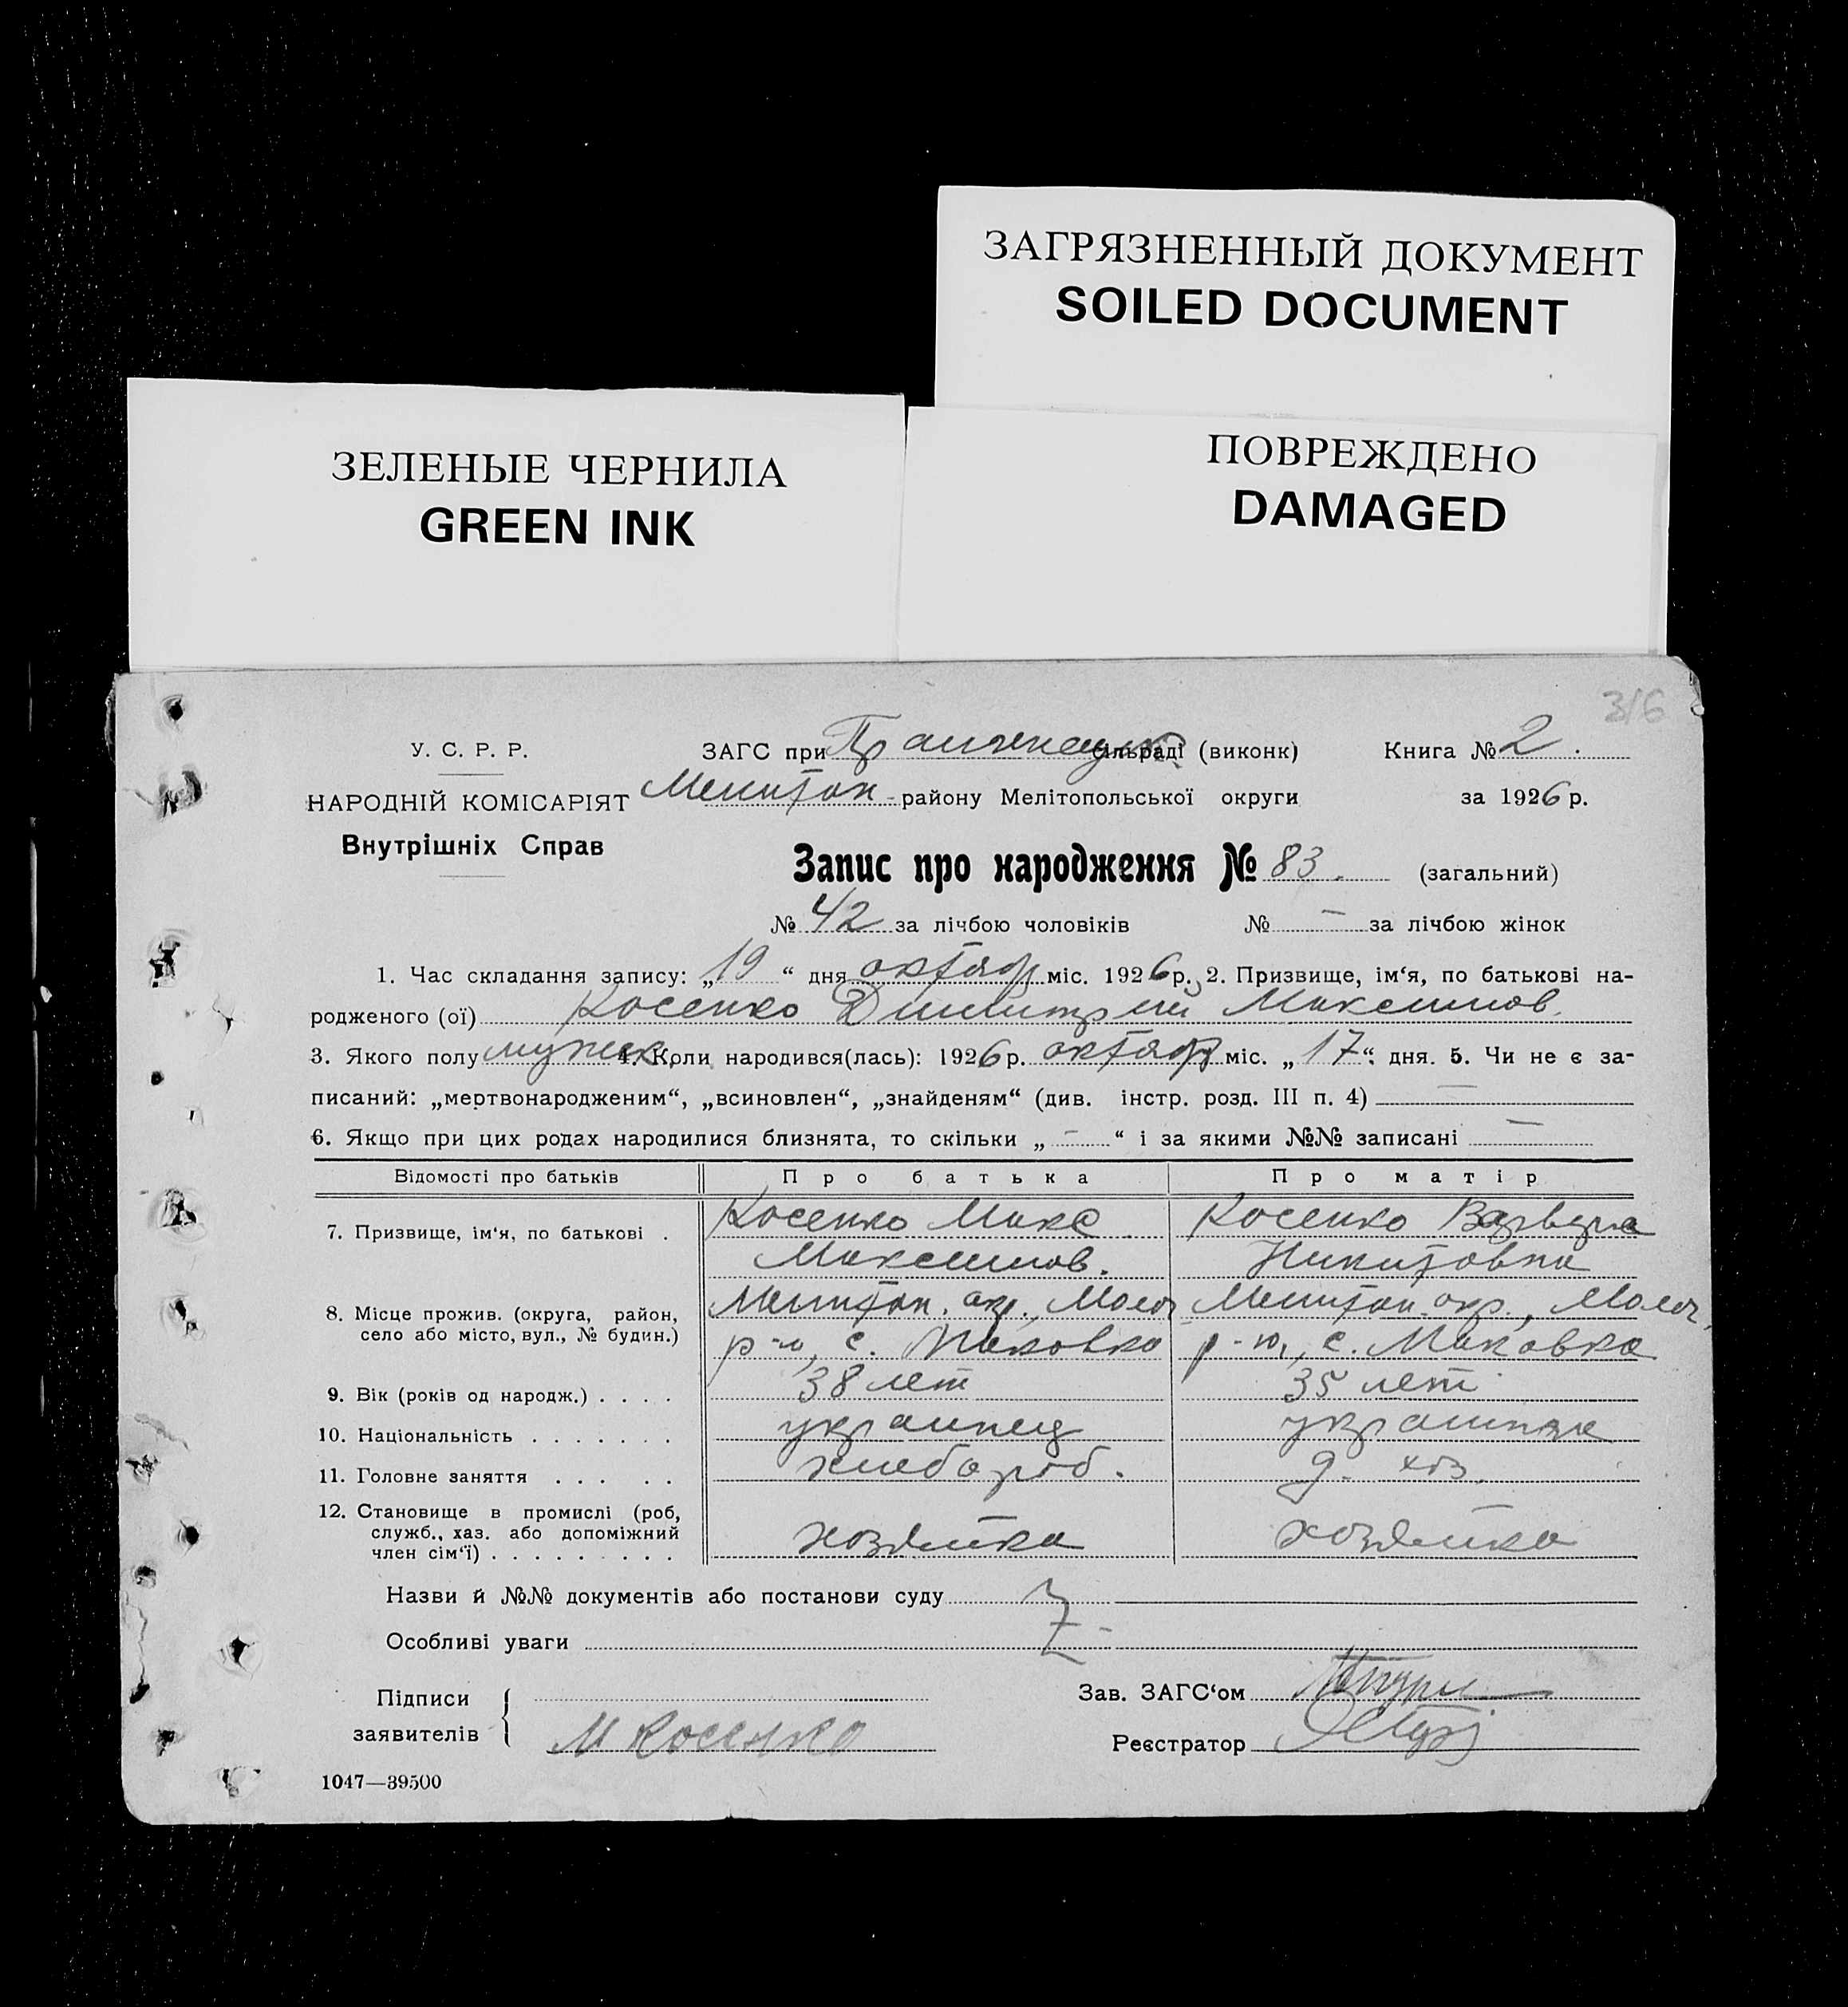 ЗАГРЯЗНЕННЫЙ ДОКУМЕНТ
SOILED DOCUMENT
ЗЕЛЕНЫЕ ЧЕРНИЛА
GREEN INK
ПОВРЕЖДЕНО
DAMAGED
316
У. С. Р. Р.
ЗАГС при сільраді (виконк) Книга № 2.
НАРОДНІЙ КОМІСАРІЯТ Мелитоп району Мелітопольської округи за 1926 р.
Внутрішніх Справ
Запис про народження № 83. (загальний)
№ 42 за лічбою чоловіків № — за лічбою жінок
1. Час складання запису: „19“ дня октяб міс. 1926 р. 2. Призвище, ім‘я, по батькові на-
родженого (ої) Косенко Димитрий Максимов.
3. Якого полу мужск. 4. Коли народився(лась): 1926 р. октяб міс. „17“ дня. 5. Чи не є за-
писаний: „мертвонародженим“, „всиновлен“, „знайденям“ (див. інстр. розд. III п. 4) —
6. Якщо при цих родах народилися близнята, то скільки „ – “ і за якими №№ записані —
Відомості про батьків Про батька Про матір
7. Призвище, ім‘я, по батькові . Косенко Макс. Косенко Варвара
Максимов. Никитовна
8. Місце прожив. (округа, район, Мелитоп. окр., Молоч Мелитоп. окр., Молоч,
село або місто, вул., № будин.) р-ю, с. Маковка р-ю, с. Маковка
9. Вік (років од народж.) . . . . 38 лет 35 лет
10. Національність . . . . . . . украинец украинка
11. Головне заняття . . . . . хлебороб. д. хоз.
12. Становище в промислі (роб,
служб., хаз. або допоміжний
член сім‘ї) . . . . . . . . . хозяйка хозяйка
Назви й №№ документів або постанови суду
Особливі уваги
Підписи Зав. ЗАГС‘ом
заявителів М Косенко
Реєстратор
1047—39500